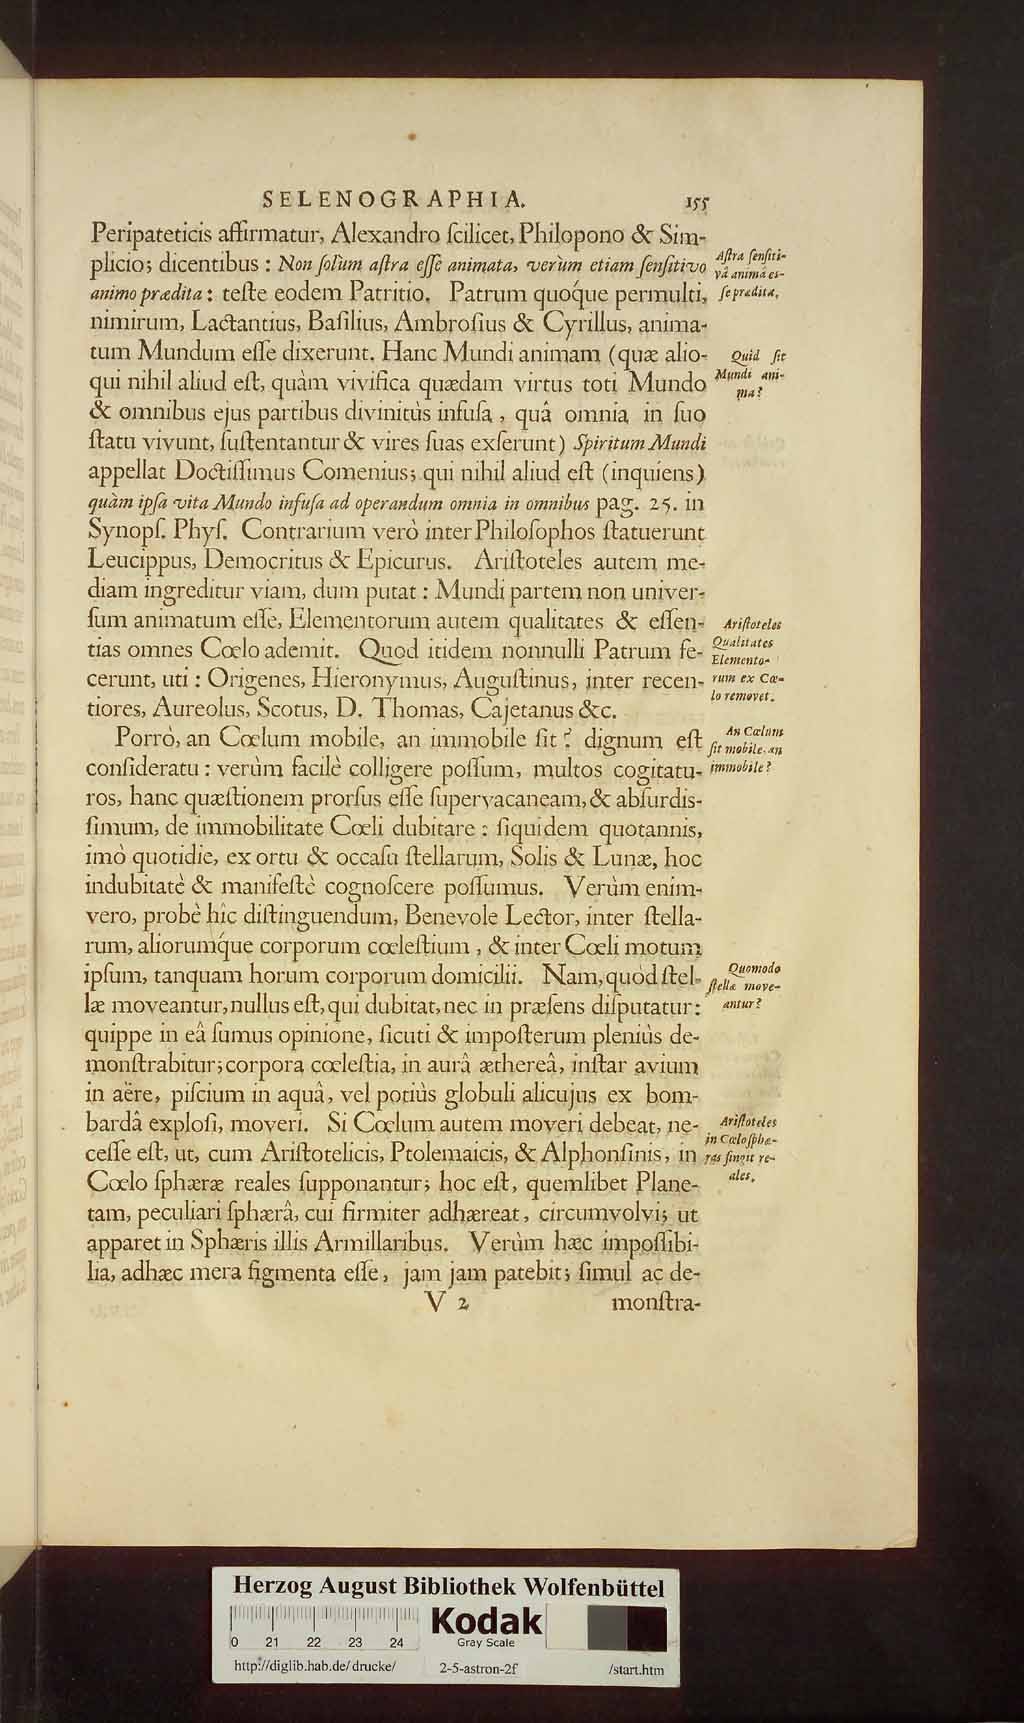 SELENOGRAPHIA. 155
Peripateticis affirmatur, Alexandro ſcilicet, Philopono & Sim-
plicio; dicentibus : Non ſolùm aſtra eſſe animata, verùm etiam ſenſitivo
animo prædita : teſte eodem Patritio. Patrum quoq́ue permulti,
nimirum, Lactantius, Baſilius, Ambroſius & Cyrillus, anima-
tum Mundum eſſe dixerunt. Hanc Mundi animam (quæ alio-
qui nihil aliud eſt, quàm vivifica quædam virtus toti Mundo
& omnibus ejus partibus divinitùs infuſa, quâ omnia in ſuo
ſtatu vivunt, ſuſtentantur & vires ſuas exſerunt) Spiritum Mundi
appellat Doctiſſimus Comenius; qui nihil aliud eſt (inquiens)
quàm ipſa vita Mundo infuſa ad operandum omnia in omnibus pag. 25. in
Synopſ. Phyſ. Contrarium verò inter Philoſophos ſtatuerunt
Leucippus, Democritus & Epicurus. Ariſtoteles autem me-
diam ingreditur viam, dum putat : Mundi partem non univer-
ſum animatum eſſe, Elementorum autem qualitates & eſſen-
tias omnes Cœlo ademit. Quod itidem nonnulli Patrum fe-
cerunt, uti : Origenes, Hieronymus, Auguſtinus, inter recen-
tiores, Aureolus, Scotus, D. Thomas, Cajetanus &c.
Porrò, an Cœlum mobile, an immobile ſit? dignum eſt
conſideratu : verùm facilè colligere poſſum, multos cogitatu-
ros, hanc quæſtionem prorſus eſſe ſupervacaneam, & abſurdis-
ſimum, de immobilitate Cœli dubitare : ſiquidem quotannis,
imò quotidie, ex ortu & occaſu ſtellarum, Solis & Lunæ, hoc
indubitatè & manifeſtè cognoſcere poſſumus. Verùm enim-
vero, probè hîc diſtinguendum, Benevole Lector, inter ſtella-
rum, aliorumq́ue corporum cœleſtium, & inter Cœli motum
ipſum, tanquam horum corporum domicilii. Nam, quòd ſtel-
læ moveantur, nullus eſt, qui dubitat, nec in præſens diſputatur:
quippe in eâ ſumus opinione, ſicuti & impoſterum pleniùs de-
monſtrabitur; corpora cœleſtia, in aurâ æthereâ, inſtar avium
in aëre, piſcium in aquâ, vel potiùs globuli alicujus ex bom-
bardâ exploſi, moveri. Si Cœlum autem moveri debeat, ne-
ceſſe eſt, ut, cum Ariſtotelicis, Ptolemaicis, & Alphonſinis, in
Cœlo ſphæræ reales ſupponantur; hoc eſt, quemlibet Plane-
tam, peculiari ſphærâ, cui firmiter adhæreat, circumvolvi; ut
apparet in Sphæris illis Armillaribus. Verùm hæc impoſſibi-
lia, adhæc mera figmenta eſſe, jam jam patebit; ſimul ac de-
V 2 monſtra-
Aſtra ſenſiti-
vâ animâ es-
ſe prædita.
Quid ſit
Mundi ani-
ma?
Ariſtoteles
Qualitates
Elemento-
rum ex Cœ-
lo removet.
An Cœlum
ſit mobile, an
immobile?
Quomodo
ſtellæ move-
antur?
Ariſtoteles
in Cœlo ſphæ-
ras fingit re-
ales.
Herzog August Bibliothek Wolfenbüttel
0 21 22 23 24
Kodak
Gray Scale
http://diglib.hab.de/drucke/ 2-5-astron-2f /start.htm